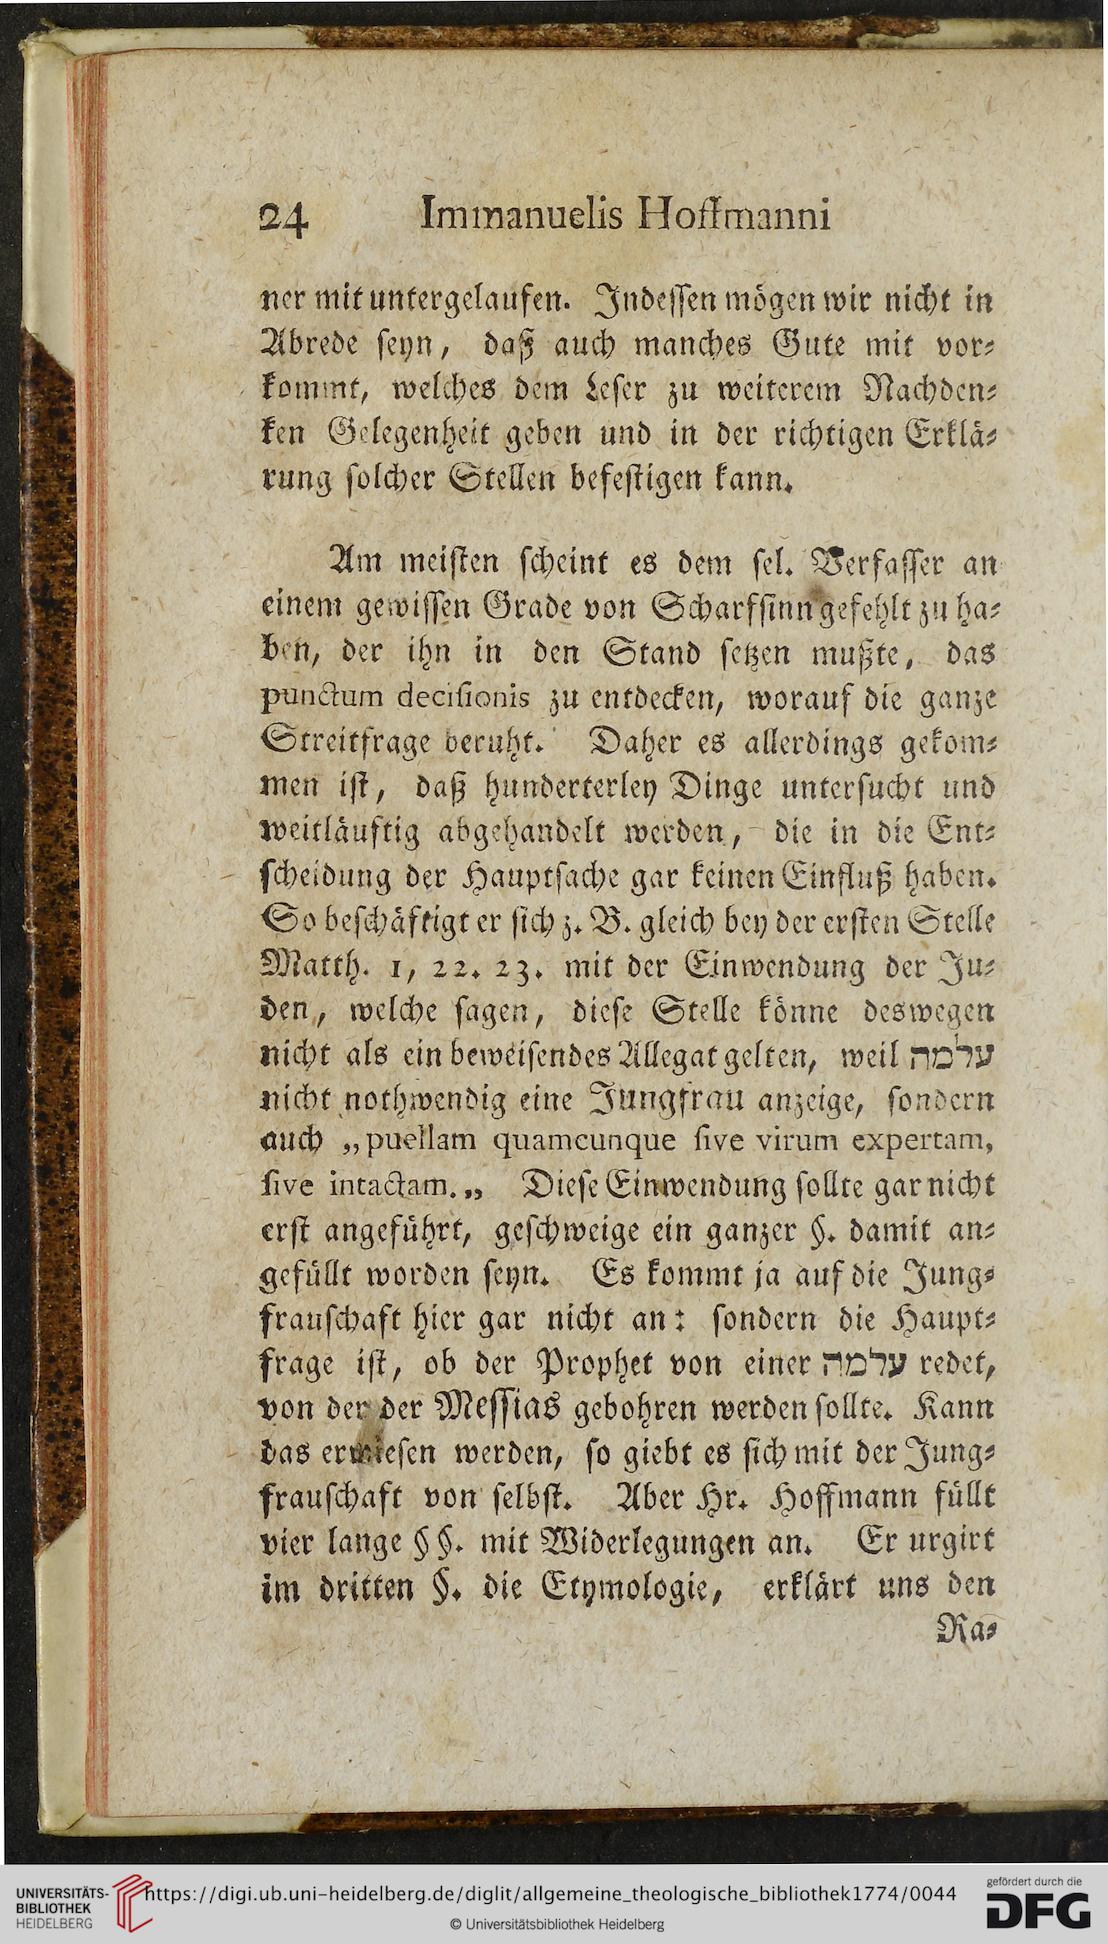 24 Immanuelis Hoffmanni
ner mit untergelaufen. Indessen mögen wir nicht in
Abrede seyn, daß auch manches Gute mit vor⸗
kommt, welches dem Leser zu weiterem Nachden⸗
ken Gelegenheit geben und in der richtigen Erklä⸗
rung solcher Stellen befestigen kann.
Am meisten scheint es dem sel. Verfasser an
einem gewissen Grade von Scharfsinn gefehlt zu ha⸗
ben, der ihn in den Stand setzen mußte, das
punctum decisionis zu entdecken, worauf die ganze
Streitfrage beruht. Daher es allerdings gekom⸗
men ist, daß hunderterley Dinge untersucht und
weitläuftig abgehandelt werden, die in die Ent⸗
scheidung der Hauptsache gar keinen Einfluß haben.
So beschäftigt er sich z. B. gleich bey der ersten Stelle
Matth. 1, 22. 23. mit der Einwendung der Ju⸗
den, welche sagen, diese Stelle könne deswegen
nicht als ein beweisendes Allegat gelten, weil עלמה
nicht nothwendig eine Jungfrau anzeige, sondern
auch „puellam quamcunque sive virum expertam,
sive intactam.„ Diese Einwendung sollte gar nicht
erst angeführt, geschweige ein ganzer §. damit an⸗
gefüllt worden seyn. Es kommt ja auf die Jung⸗
frauschaft hier gar nicht an: sondern die Haupt⸗
frage ist, ob der Prophet von einer עלמה redet,
von der der Messias gebohren werden sollte. Kann
das erwiesen werden, so giebt es sich mit der Jung⸗
frauschaft von selbst. Aber Hr. Hoffmann füllt
vier lange §§. mit Widerlegungen an. Er urgirt
im dritten §. die Etymologie, erklärt uns den
Ra⸗
UNIVERSITÄTS-
BIBLIOTHEK
HEIDELBERG
https://digi.ub.uni-heidelberg.de/diglit/allgemeine_theologische_bibliothek1774/0044
© Universitätsbibliothek Heidelberg
gefördert durch die
DFG